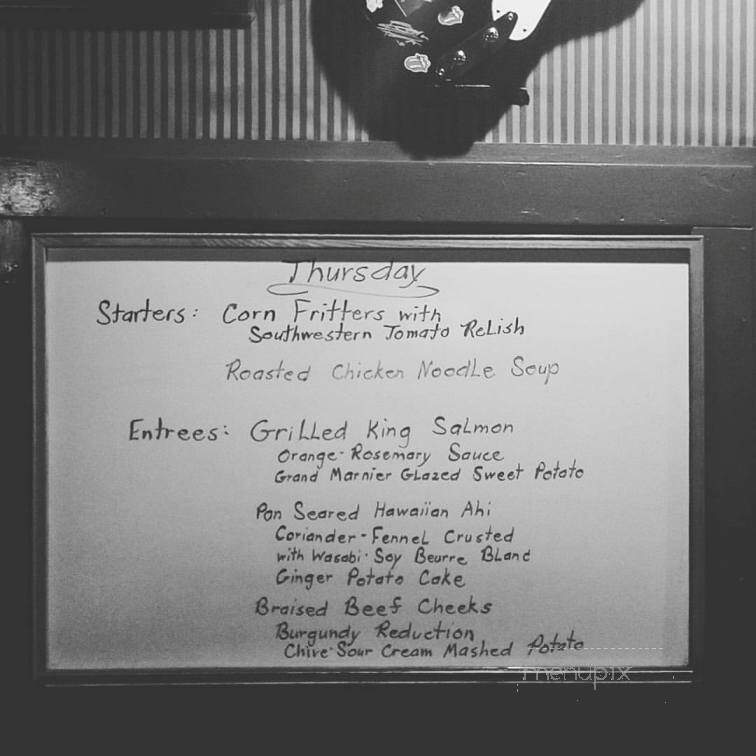 Thursday
Starters: Corn Fritters with
Southwestern Tomato Relish
Roasted Chicken Noodle Soup
Entrees: Grilled King Salmon
Orange-Rosemary Sauce
Grand Marnier Glazed Sweet Potato
Pan Seared Hawaiian Ahi
Coriander-Fennel Crusted
with Wasabi-Soy Beurre Bland
Ginger Potato Cake
Braised Beef Cheeks
Burgundy Reduction
Chive-Sour Cream Mashed Potato
menupix